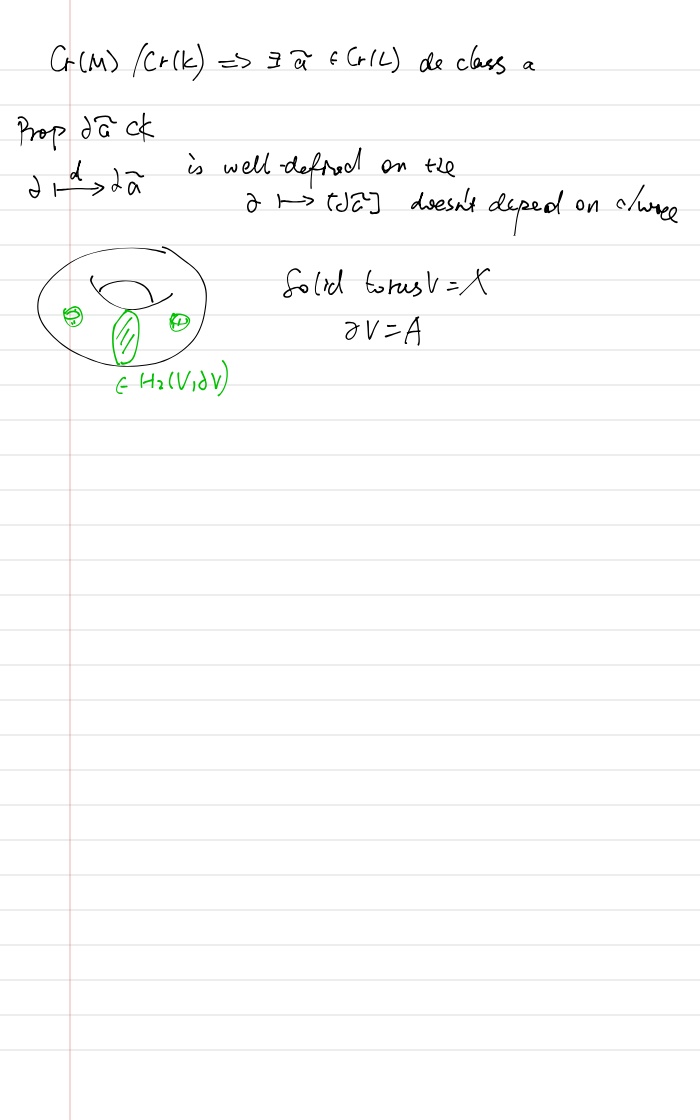 Cr(M) /Cr(k) => ∃ ã ∈ Cr(L) de class a
Prop ∂ã ck
∂ ⟼ᵈ ∂ã is well-defined on the
∂ ⟼ [∂ã] doesn't depend on
Solid torus V = X
∂V = A
∈ H₂(V,∂V)